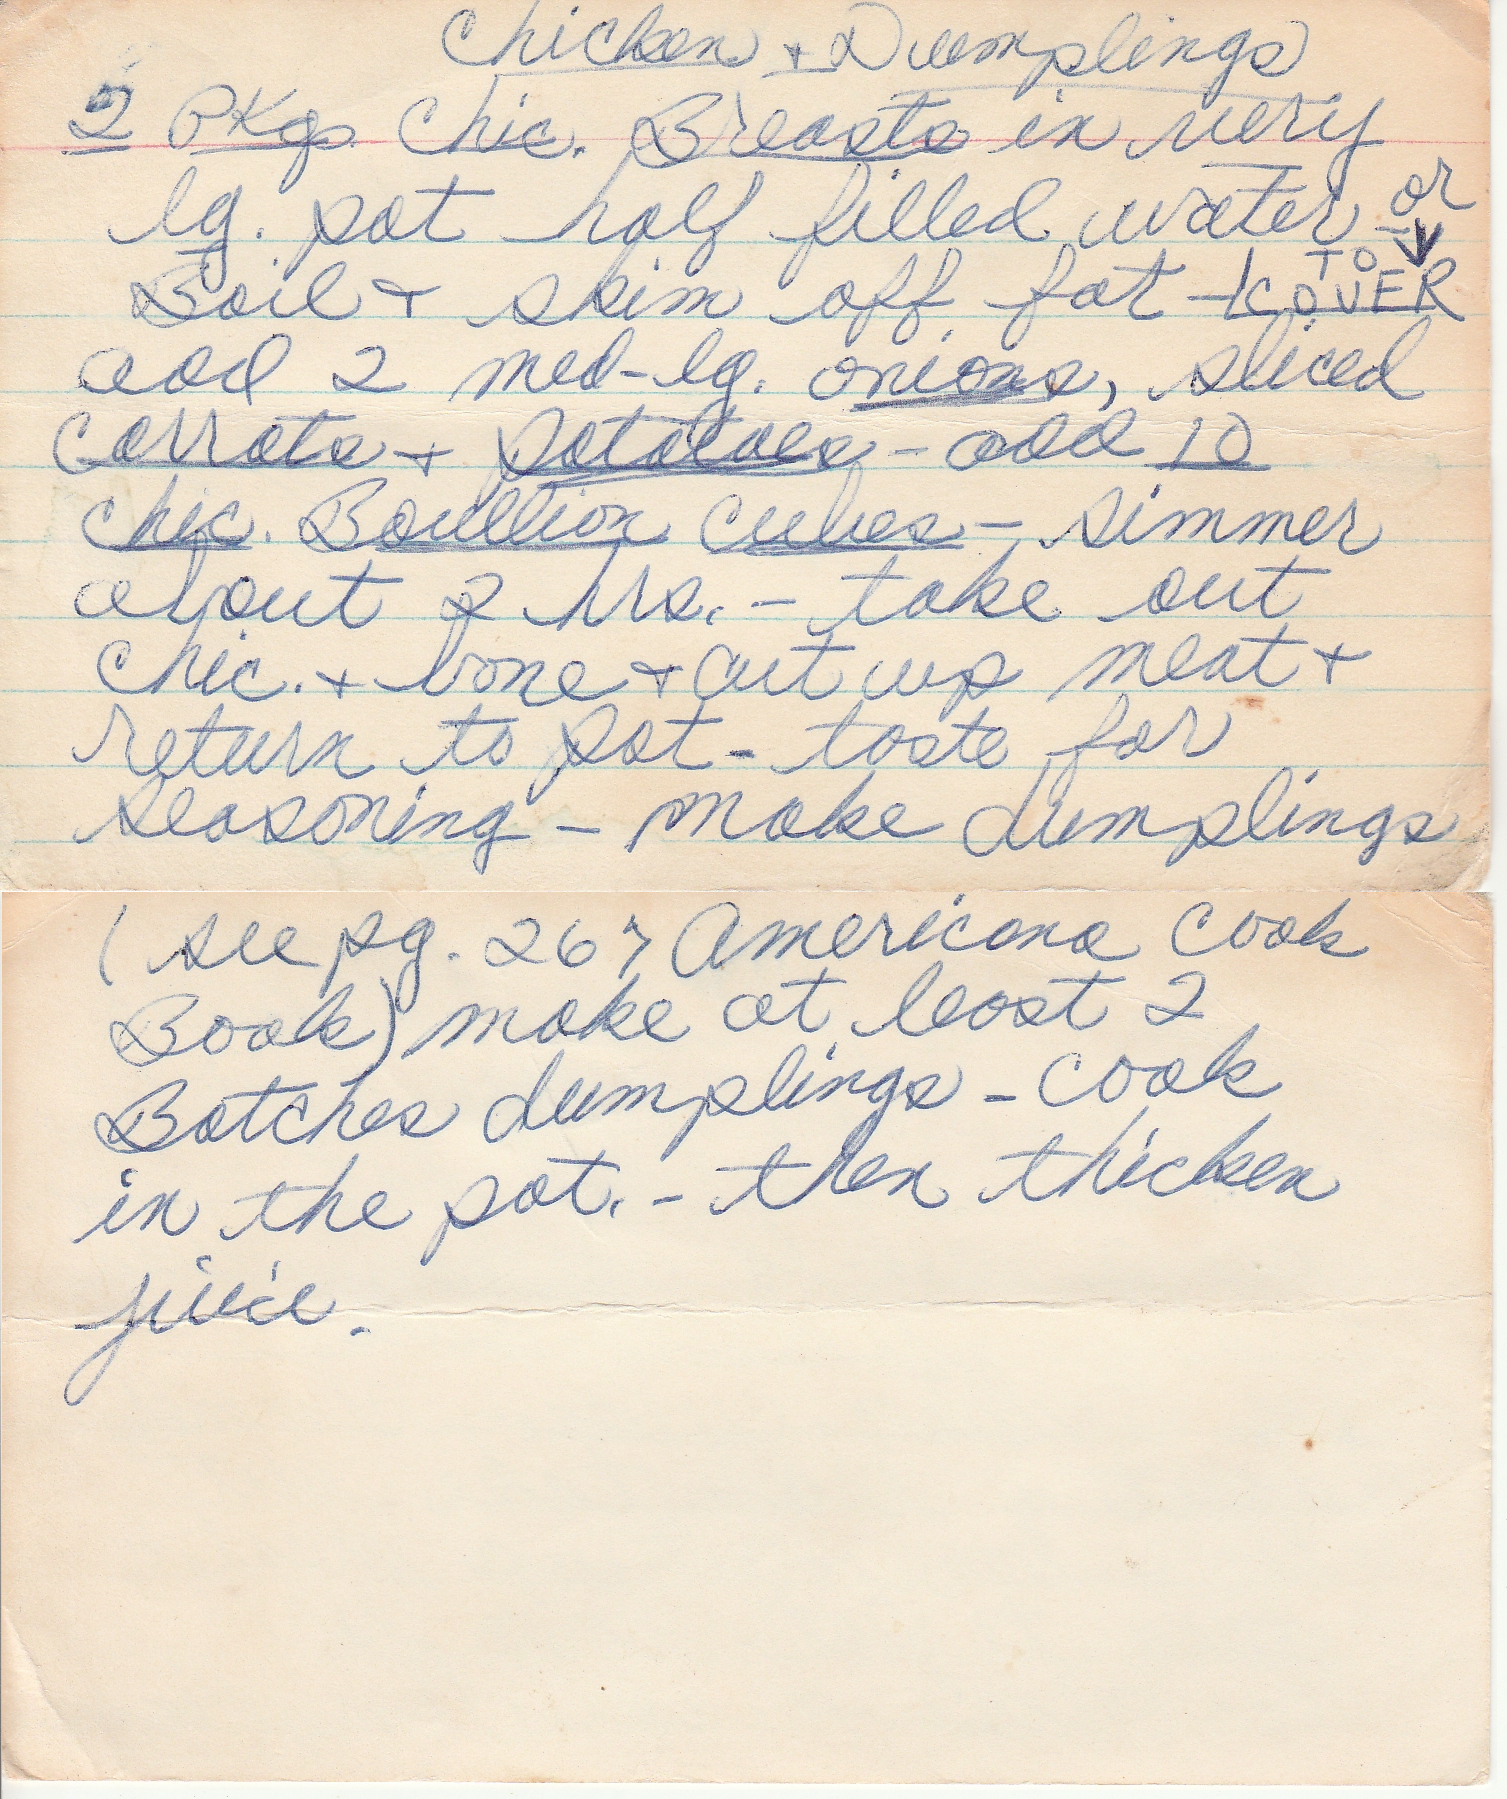 Chicken + Dumplings
2 PKgs Chic. Breasts in very
lg. pot half filled water or
TO
Boil + skim off fat - COVER
add 2 med-lg. onions, sliced
Carrots + Potatoes - add 10
chic. Boullion Cubes - simmer
about 2 hrs. - take out
chic. + bone + cut up meat +
return to pot - taste for
seasoning - make dumplings
(see pg. 267 Americana Cook
Book) make at least 2
Batches dumplings - cook
in the pot. - then thicken
juice.